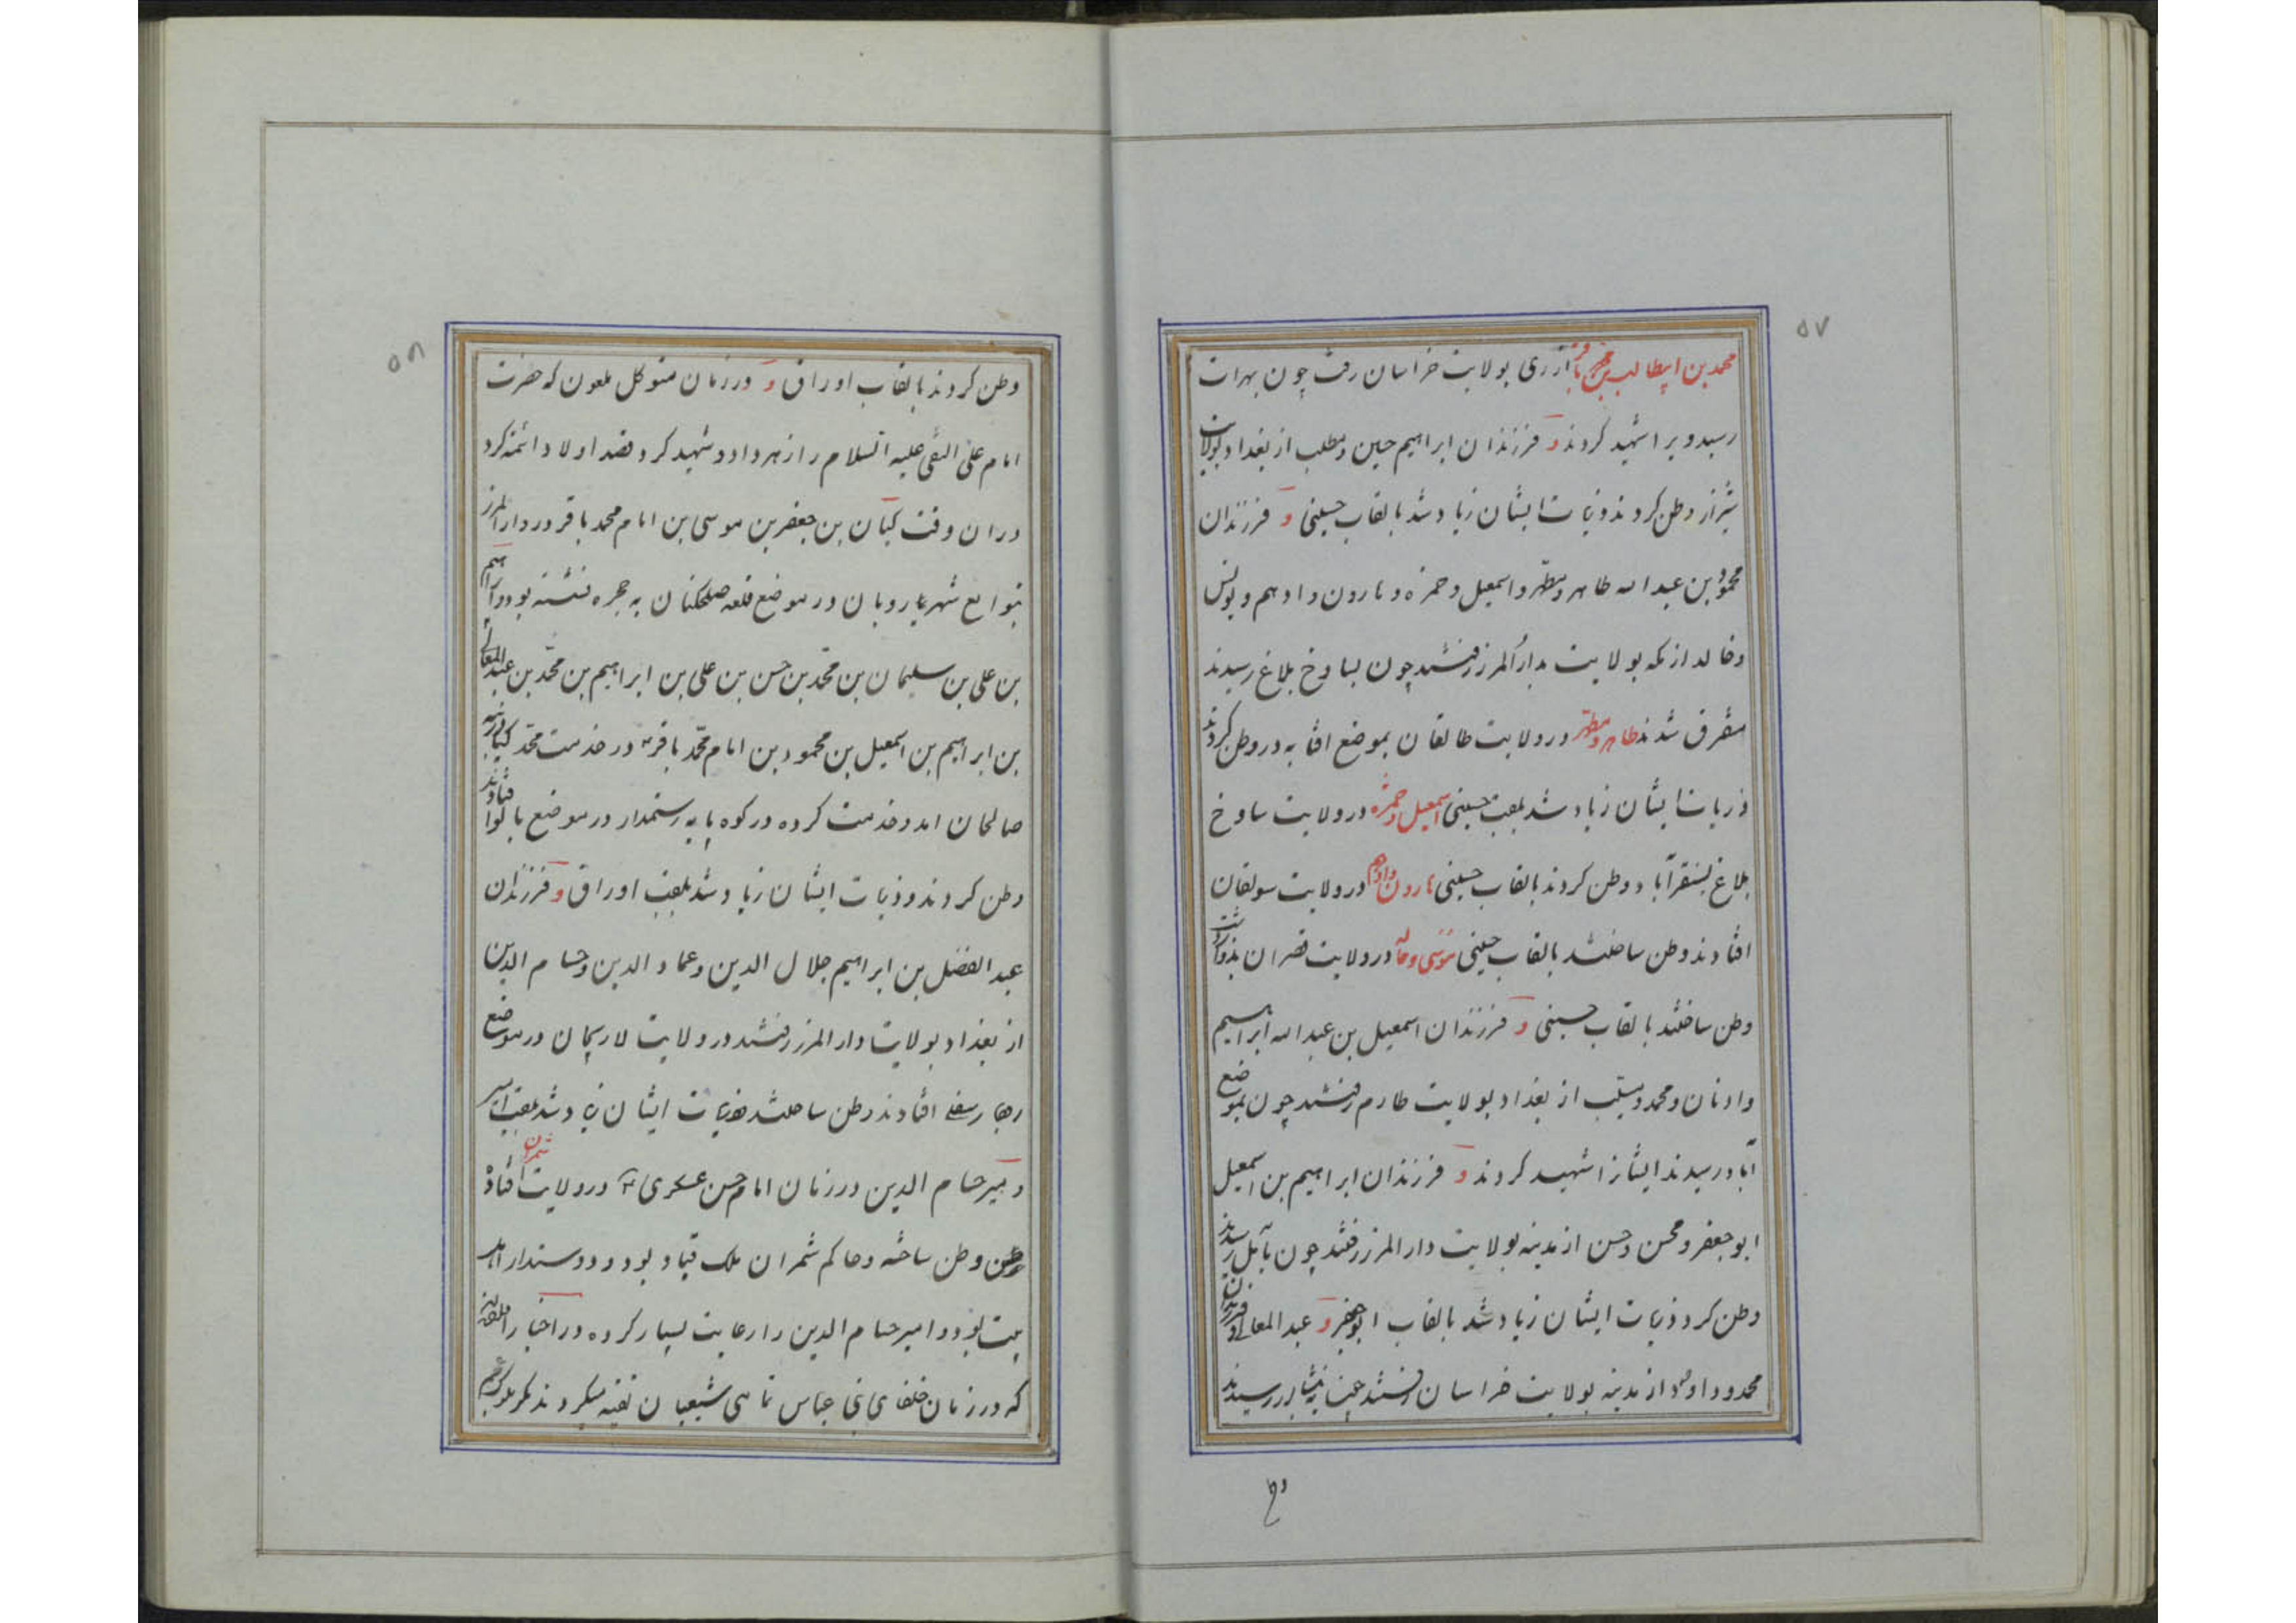 ۵۷
محمد بن ابیطالب بن محمد باقر از ری بولایت خراسان رفت چون بهرات
رسید ویرا شهید کردند و فرزندان ابراهیم حسین و مطلب از بغداد بولایت
شیراز وطن کردند و ذریات ایشان زیاد شد بالقاب حسینی و فرزندان
محمود بن عبد الله طاهر و مطهر و اسمعیل و حمزه و هارون و ادهم و یونس
و خالد از مکه بولایت بدار المرز رفتند چون بساوخ بلاغ رسیدند
متفرق شدند طاهر و مطهر در ولایت طالقان بموضع افتاده در وطن کردند
ذریات ایشان زیاد شد بلقب حسینی اسمعیل و حمزه در ولایت ساوخ
بلاغ بسنقرآباد وطن کردند بالقاب حسینی هارون و ادهم در ولایت سولقان
افتادند وطن ساختند بالقاب حسینی موسی و خالد در ولایت قصران
وطن ساختند بالقاب حسینی و فرزندان اسمعیل بن عبد الله ابراهیم
و ادنان و محمد و مسیب از بغداد بولایت طارم رفتند چون بموضع
آباد رسیدند ایشانرا شهید کردند و فرزندان ابراهیم بن اسمعیل
ابو جعفر و محسن و حسن از مدینه بولایت دار المرز رفتند چون بآمل رسیدند
وطن کرد ذریات ایشان زیاد شد بالقاب ابو جعفر و عبد المعالی و فرزندان
محمد و داود از مدینه بولایت خراسان رفتند رسیدند
۵۸
وطن کردند بالقاب اوراق و در زمان متوکل ملعون که حضرت
امام علی النقی علیه السلام را زهر داد و شهید کرد و قصد اولاد ائمه کرد
در ان وقت کیان بن جعفر بن موسی بن امام محمد باقر در دار المرز
بتوابع شهر یارویان در موضع قلعه صلحکنان به حجره نشسته بود و ابراهیم
بن علی بن سلیمان بن محمد بن حسن بن علی بن ابراهیم بن محمد بن عبد المعالی
بن ابراهیم بن اسمعیل بن محمود بن امام محمد باقر ع در خدمت محمد کیا
صالحان امد و خدمت کرده در کوه پایه رستمدار در موضع بالوا افتادند
وطن کردند و ذریات ایشان زیاد شد بلقب اوراق و فرزندان
عبد الفضل بن ابراهیم جلال الدین و عماد الدین و حسام الدین
از بغداد بولایت دار المرز رفتند در ولایت لاریجان در موضع
افتادند وطن ساختند ذریات ایشان زیاد شد بلقب امیر
و میر حسام الدین در زمان امام حسن عسکری ع در ولایت شمران افتاد
وطن ساخته و حاکم شمران ملک قباد بود و دوستدار اهل
بیت بود و امیر حسام الدین را رعایت بسیار کرده در اخبار
که در زمان خلفای بنی عباس تمامی شیعیان تقیه میکردند